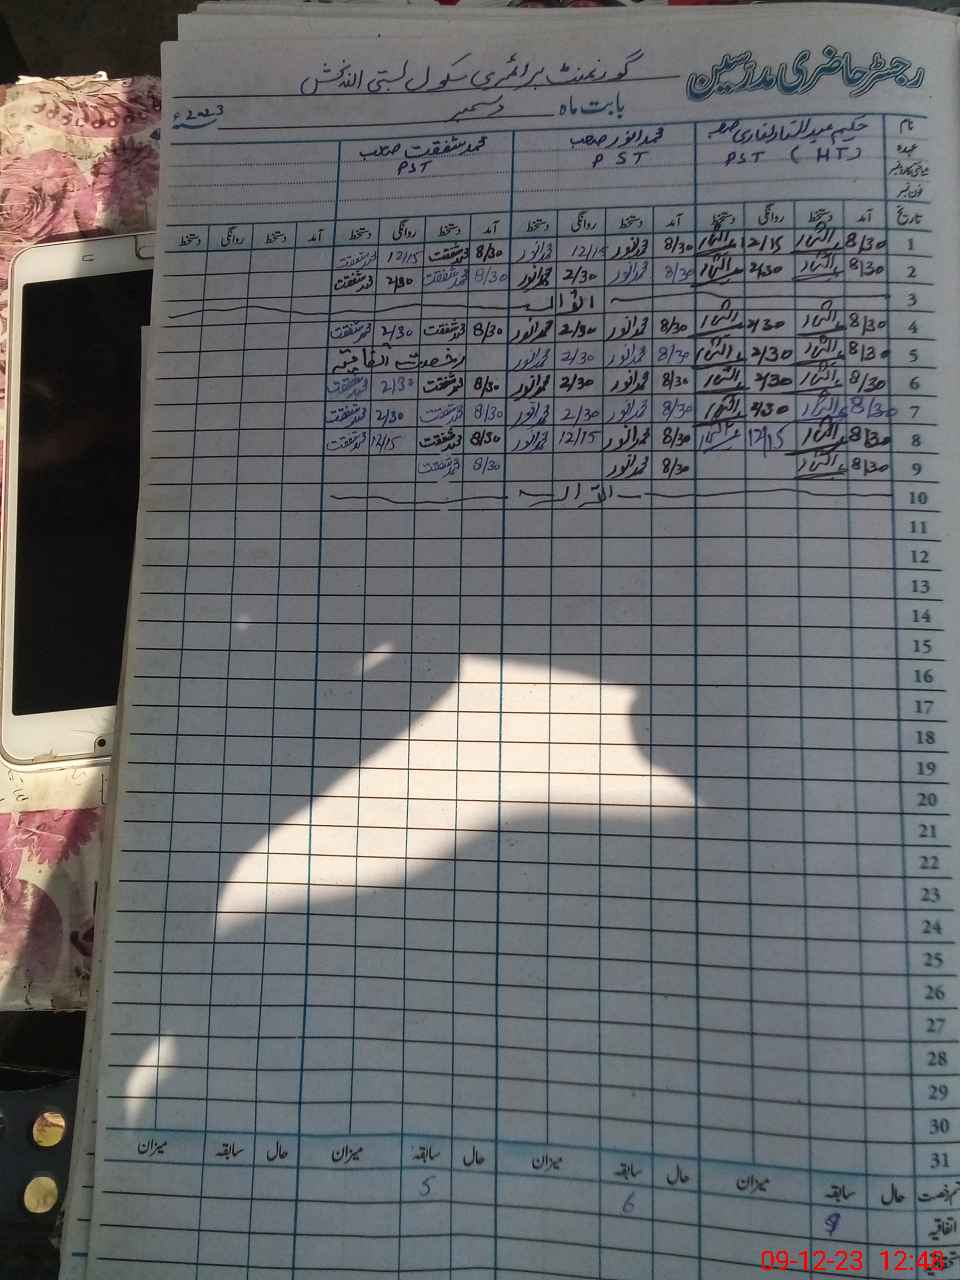 رجسٹر حاضری مدرسین
گورنمنٹ پرائمری سکول بستی اللہ بخش
بابت ماہ دسمبر 2023ء
نام حکیم عبدالستار لغاری صاحب محمد انور صاحب محمد شفقت صاحب
عہدہ PST (HT) PST PST
فون نمبر
تاریخ آمد دستخط روانگی دستخط آمد دستخط روانگی دستخط آمد دستخط روانگی دستخط آمد دستخط روانگی دستخط
1 8/30 12/15 8/30 محمد انور 12/15 محمد انور 8/30 محمد شفقت 12/15 محمد شفقت
2 8/30 2/30 8/30 محمد انور 2/30 محمد انور 8/30 محمد شفقت 2/30 محمد شفقت
3 اتوار
4 8/30 2/30 8/30 محمد انور 2/30 محمد انور 8/30 محمد شفقت 2/30 محمد شفقت
5 8/30 2/30 8/30 محمد انور 2/30 محمد انور رخصت اتفاقیہ
6 8/30 2/30 8/30 محمد انور 2/30 محمد انور 8/30 محمد شفقت 2/30 محمد شفقت
7 8/30 2/30 8/30 محمد انور 2/30 محمد انور 8/30 محمد شفقت 2/30 محمد شفقت
8 8/30 12/15 8/30 محمد انور 12/15 محمد انور 8/30 محمد شفقت 12/15 محمد شفقت
9 8/30 8/30 محمد انور 8/30 محمد شفقت
10 اتوار
11
12
13
14
15
16
17
18
19
20
21
22
23
24
25
26
27
28
29
30
31
قسم رخصت حال سابقہ میزان حال سابقہ میزان حال سابقہ میزان حال سابقہ میزان
اتفاقیہ 6 5
09-12-23 12:48